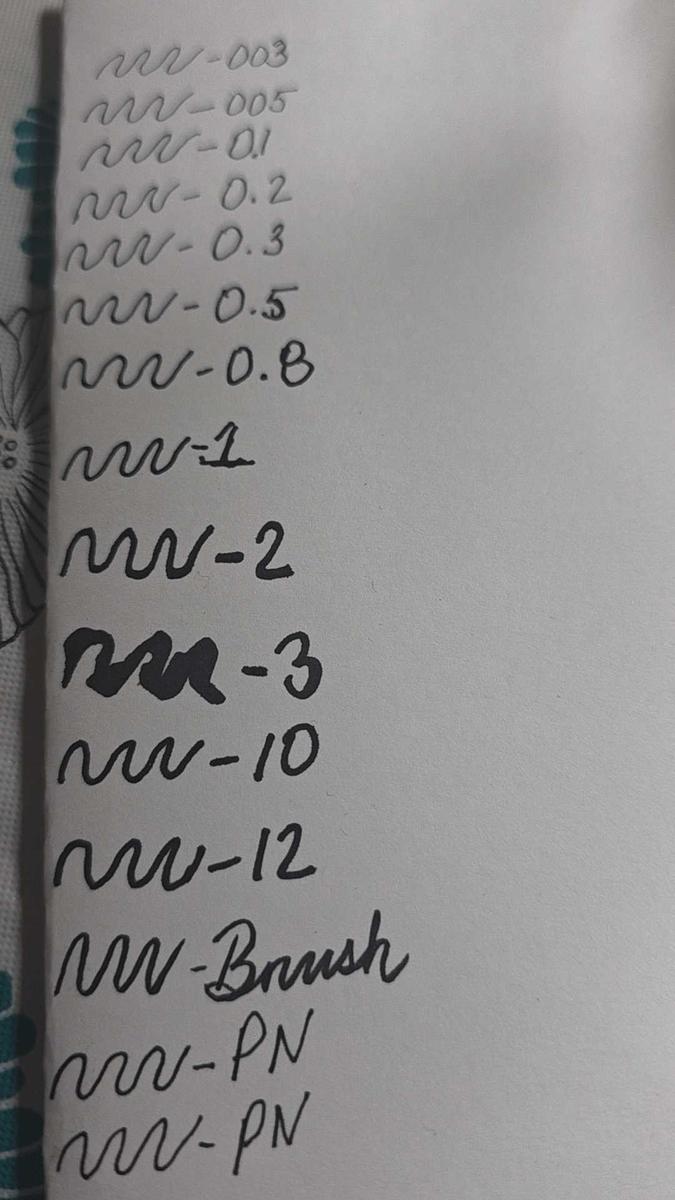 -003
-005
-0.1
-0.2
-0.3
-0.5
-0.8
-1
-2
-3
-10
-12
-Brush
-PN
-PN